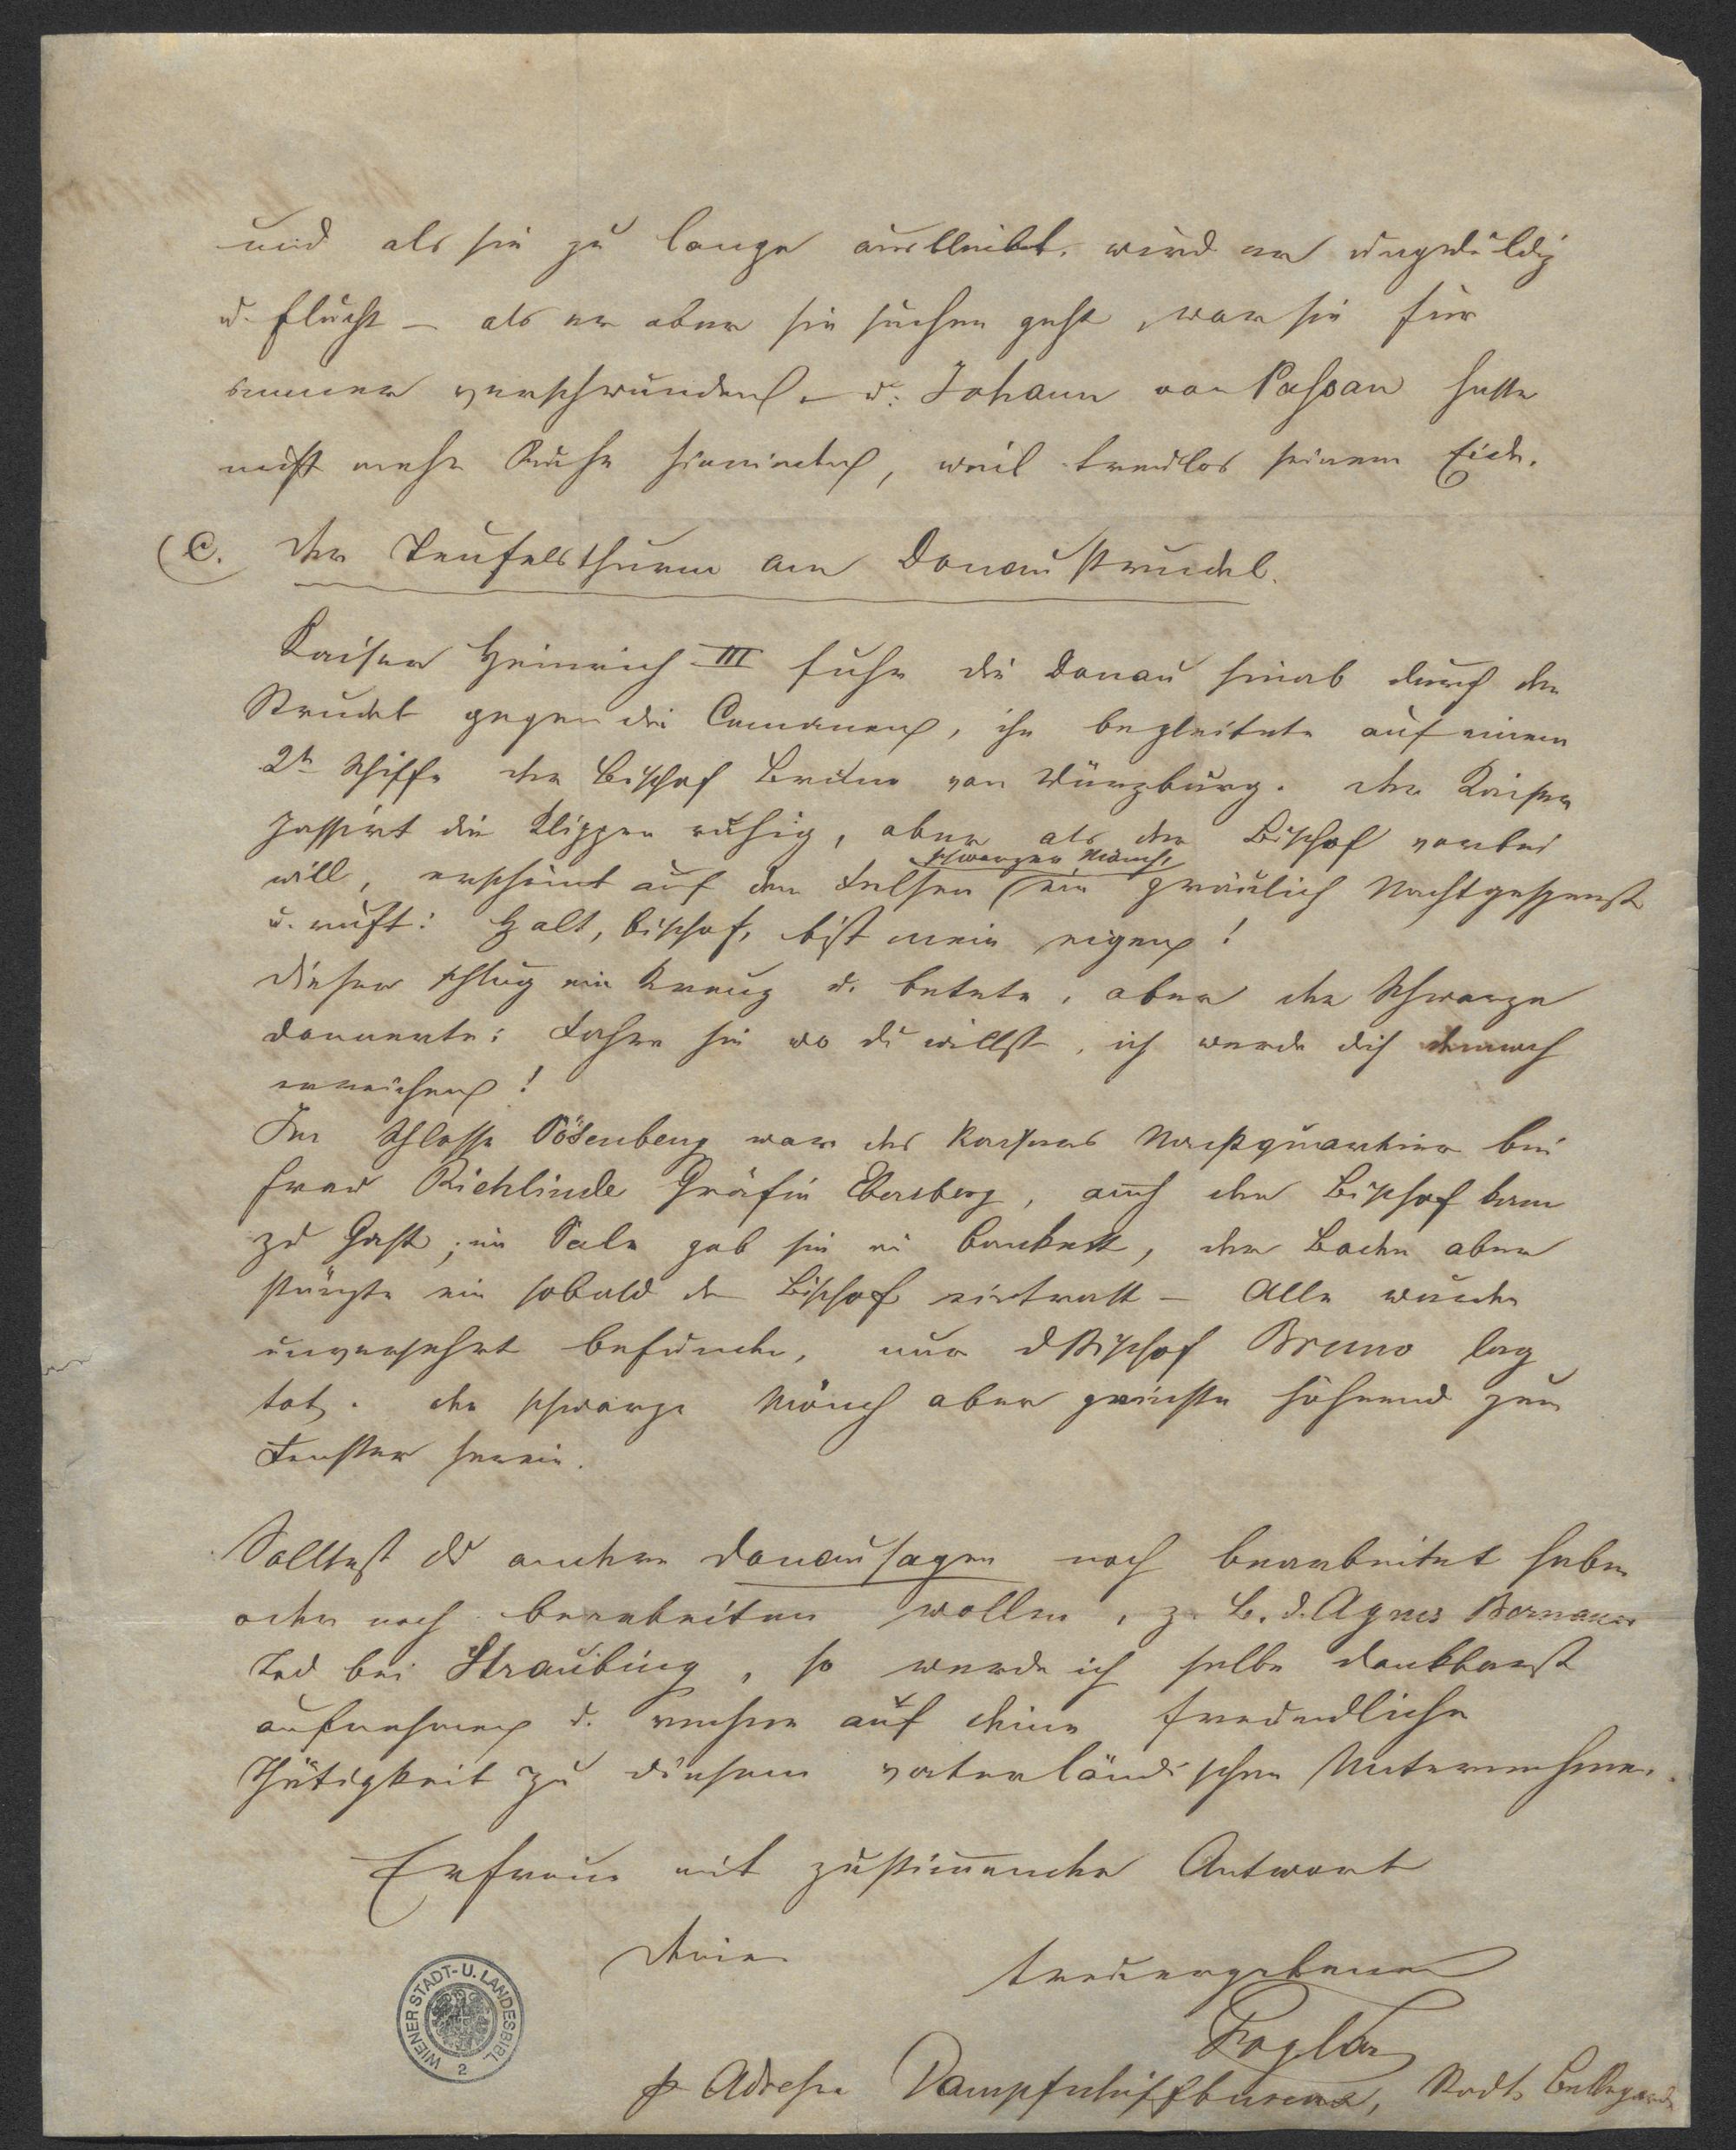 und als sie zu lange ausbleibt, wird er ungeduldig
u. flucht – als er aber sie suchen geht, war sie für
immer verschwunden, – u. Johann von Passau hatte
nicht mehr Ruhe hienieden, weil treulos seinem Eide.
C. Der Teufelsthurm am Donaustrudel.
Kaiser Heinrich III fuhr die Donau hinab durch den
Strudel gegen die Cumanen, ihn begleitete auf einem
2t Schiffe der Bischof Bruno von Würzburg. Der Kaiser
passirt die Klippen ruhig, aber als der Bischof vorbei
schwarzer Mönch,
will, erscheint auf dem Felsen (ein gräulich Nachtgespenst
u. ruft: Halt, Bischof, bist mein eigen!
Dieser schlug ein Kreuz u. betete, aber der Schwarze
donnerte: Fahre hin wo du willst, ich werde dich dennoch
erreichen!
Im Schlosse Pösenbeug war des Kaisers Nachtquartier bei
Frau Richlinde Gräfin Ebersberg, auch der Bischof kam
zu Gast; im Sale gab sie ei Bankett, der Boden aber
stürzte ein sobald der Bischof eintratt – Alle wurden
unversehrt befunden, nur d Bischof Bruno lag
tot. Der schwarze Mönch aber grinste höhnend zum
Fenster herein.
Solltest du andere Donausagen noch bearbeitet haben
oder noch bearbeiten wollen, z. B. d. Agnes Bernauer
Tod bei Straubing, so werde ich selbe dankbarst
aufnehmen u. rechne auf deine freundliche
Thätigkeit zu diesem vaterländischen Unternehmen.
Erfreue mit zustimmender Antwort
Deinen
treuergebenen
Foglar
p Adresse Dampfschiffbureau, Stadt, Bellegarde
WIENER STADT- U. LANDESBIBL.
2